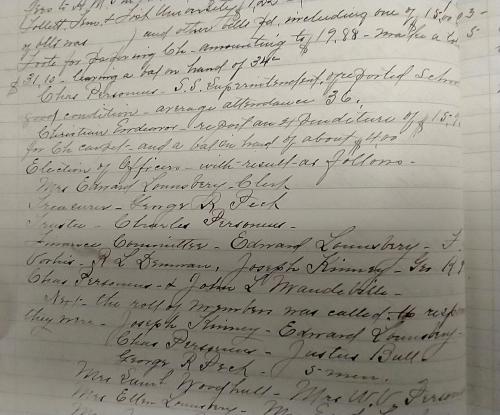 and other bills pd, including one of $15.00
vote for papering Ch - amounting to $19.88 - makes a
$31,10 - leaving a bal on hand of 34c
Chas Personius - S.S. Superintendent, reported School
good condition - average attendance 36.
Christian Endeavor - report an expenditure of $15.
for Ch carpet - and a bal on hand of about $4.00
Election of Officers - with result as follows -
Mrs Edward Lounsbery - Clerk
Treasurer - George R Peck
Trustee - Charles Personius -
Finance Committee - Edward Lounsbery - F.
Vorhis - R L Denman, Joseph Kinney - Geo R P
Chas Personius & John L Mandeville -
Next - the roll of members was called - to resp
they were - Joseph Kinney - Edward Lounsbery -
Chas Personius - Justus Ball -
George R Peck - 5 men.
Mrs Saml Woodhull - Mrs W. V. Person
Mrs Ellen Lounsbery -